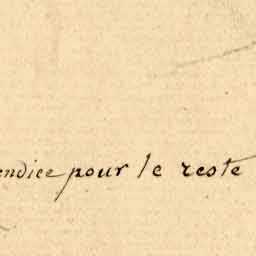 endice pour le reste